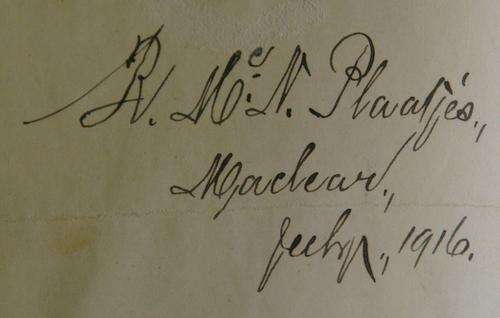 R. Mc. N. Plaatjés,
Maclear,
July, 1916.